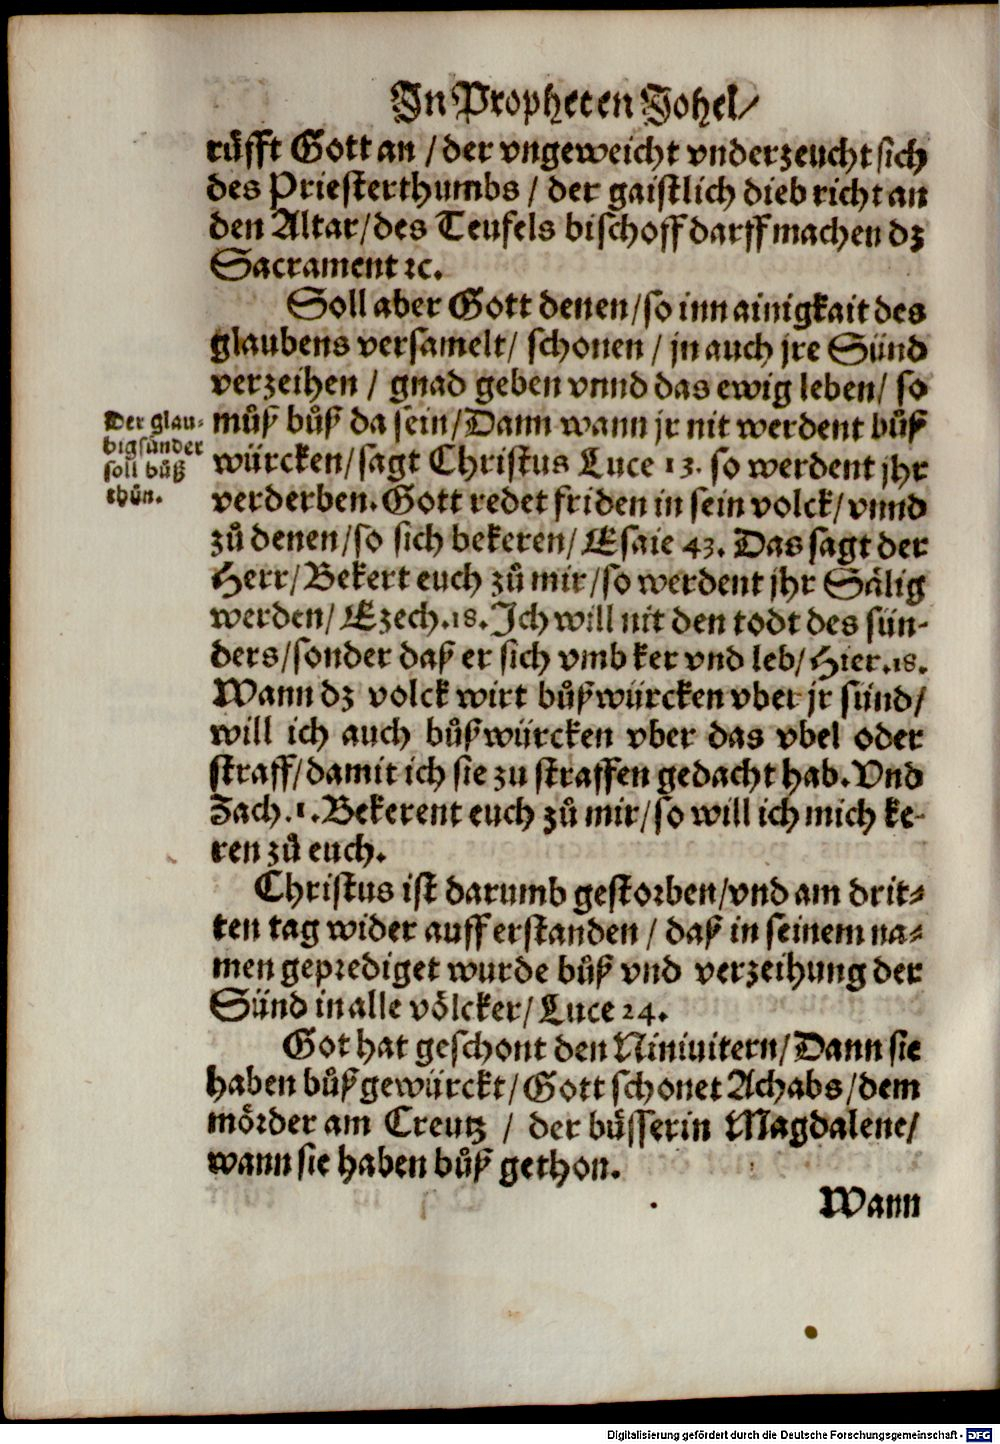 In Propheten Johel/
růfft Gott an / der vngeweicht vnderzeucht sich
des Priesterthumbs / der gaistlich dieb richt an
den Altar/ des Teufels bischoff darff machen dz
Sacrament ꝛc.
Soll aber Gott denen/ so inn ainigkait des
glaubens versamelt/ schonen / jn auch jre Sünd
verzeihen / gnad geben vnnd das ewig leben/ so
můß bůß da sein/ Dann wann jr nit werdent bůß
würcken/ sagt Christus Luce 13. so werdent jhr
verderben. Gott redet friden in sein volck/ vnnd
zů denen/ so sich bekeren/ Esaie 43. Das sagt der
Herr/ Bekert euch zů mir/ so werdent jhr Sälig
werden/ Ezech. 18. Ich will nit den todt des sün-
ders/ sonder daß er sich vmb ker vnd leb/ Hier. 18.
Wann dz volck wirt bůß würcken vber jr sünd/
will ich auch bůß würcken vber das vbel oder
straff/ damit ich sie zu straffen gedacht hab. Vnd
Zach. 1. Bekerent euch zů mir/ so will ich mich ke-
ren zů euch.
Christus ist darumb gestorben/ vnd am drit-
ten tag wider aufferstanden / daß in seinem na-
men geprediget wurde bůß vnd verzeihung der
Sünd in alle völcker/ Luce 24.
Got hat geschont den Niniuitern/ Dann sie
haben bůß gewürckt/ Gott schonet Achabs/ dem
mörder am Creutz / der büsserin Magdalene/
wann sie haben bůß gethon.
Wann
Der glau-
big sünder
soll bůß
thůn.
Digitalisierung gefördert durch die Deutsche Forschungsgemeinschaft - DFG